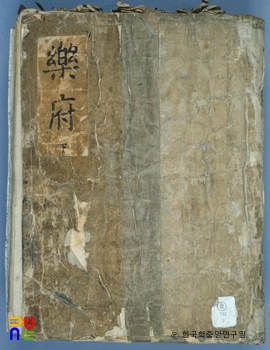 樂府
下
© 한국학중앙연구원